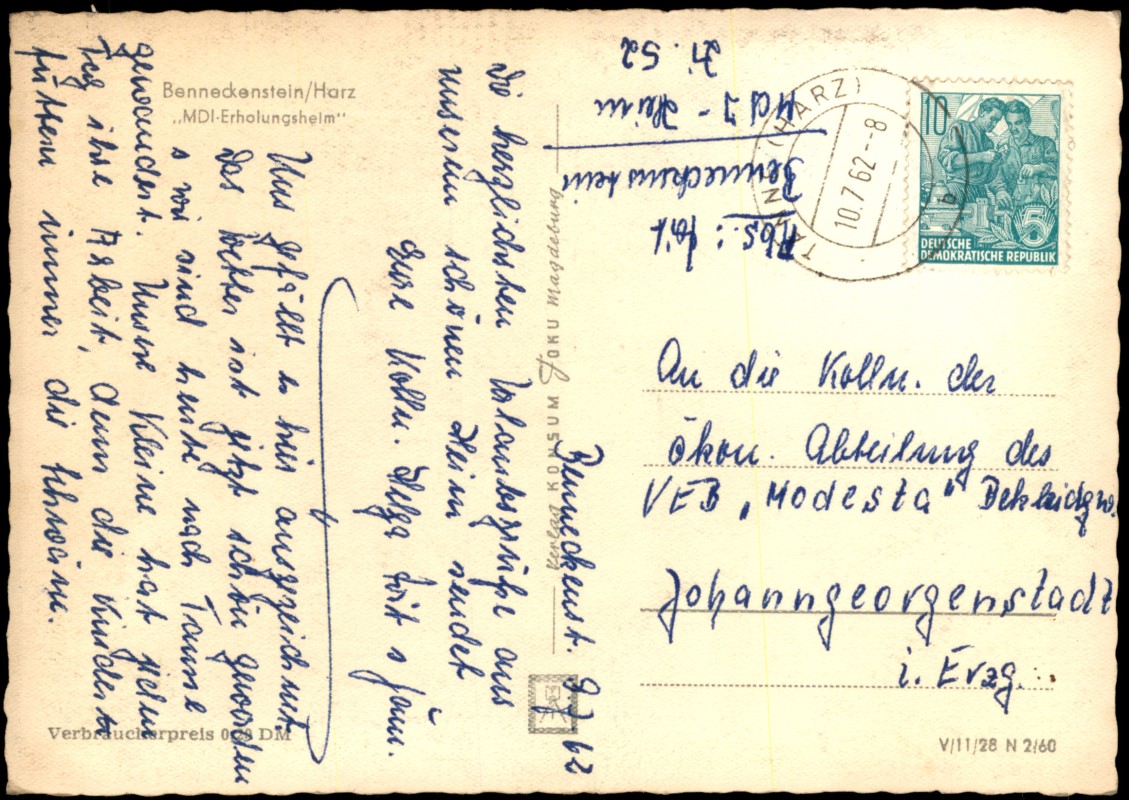 Benneckenstein/Harz
„MDI-Erholungsheim"
Benneckenst. 9.7.62
Die herzlichsten Urlaubsgrüße aus
unserem schönen Heim sendet
Eure Kolln. Helga Voit u. Fam.
Uns gefällt es hier ausgezeichnet.
Das Wetter ist jetzt schön geworden
u. wir sind heute nach Tanne
gewandert. Unsre Kleine hat jeden
Tag ihre Arbeit, denn die Kinder
füttern immer die Schweine.
Verbraucherpreis 0,20 DM
Verlag KONSUM FOKU Magdeburg
Abs.: Voit
Benneckenstein
MdI-Heim
Zi. 52
TANNE (HARZ)
10.7.62--8
b
10
5
DEUTSCHE
DEMOKRATISCHE REPUBLIK
An die Kolln. der
ökon. Abteilung des
VEB „Modesta" Bekleidgw.
Johanngeorgenstadt
i. Erzg.
V/11/28 N 2/60